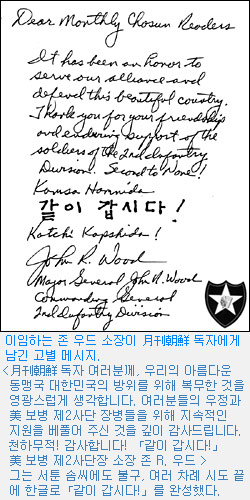 Dear Monthly Chosun Readers
It has been an honor to
serve our alliance and
defend this beautiful country.
Thank you for your friendship
and enduring support of the
soldiers of the 2nd Infantry
Division. Second to None!
Kamsa Hamnida
같이 갑시다!
Katchi Kapshida!
John R. Wood
Major General John R. Wood
Commanding General
2nd Infantry Division
이임하는 존 우드 소장이 月刊朝鮮 독자에게
남긴 고별 메시지.
<月刊朝鮮 독자 여러분께. 우리의 아름다운
동맹국 대한민국의 방위를 위해 복무한 것을
영광스럽게 생각합니다. 여러분들의 우정과
美 보병 제2사단 장병들을 위해 지속적인
지원을 베풀어 주신 것을 깊이 감사드립니다.
천하무적! 감사합니다! 「같이 갑시다!」
美 보병 제2사단장 소장 존 R. 우드>
그는 서툰 솜씨에도 불구, 여러 차례 시도 끝
에 한글로「같이 갑시다!」를 완성했다.